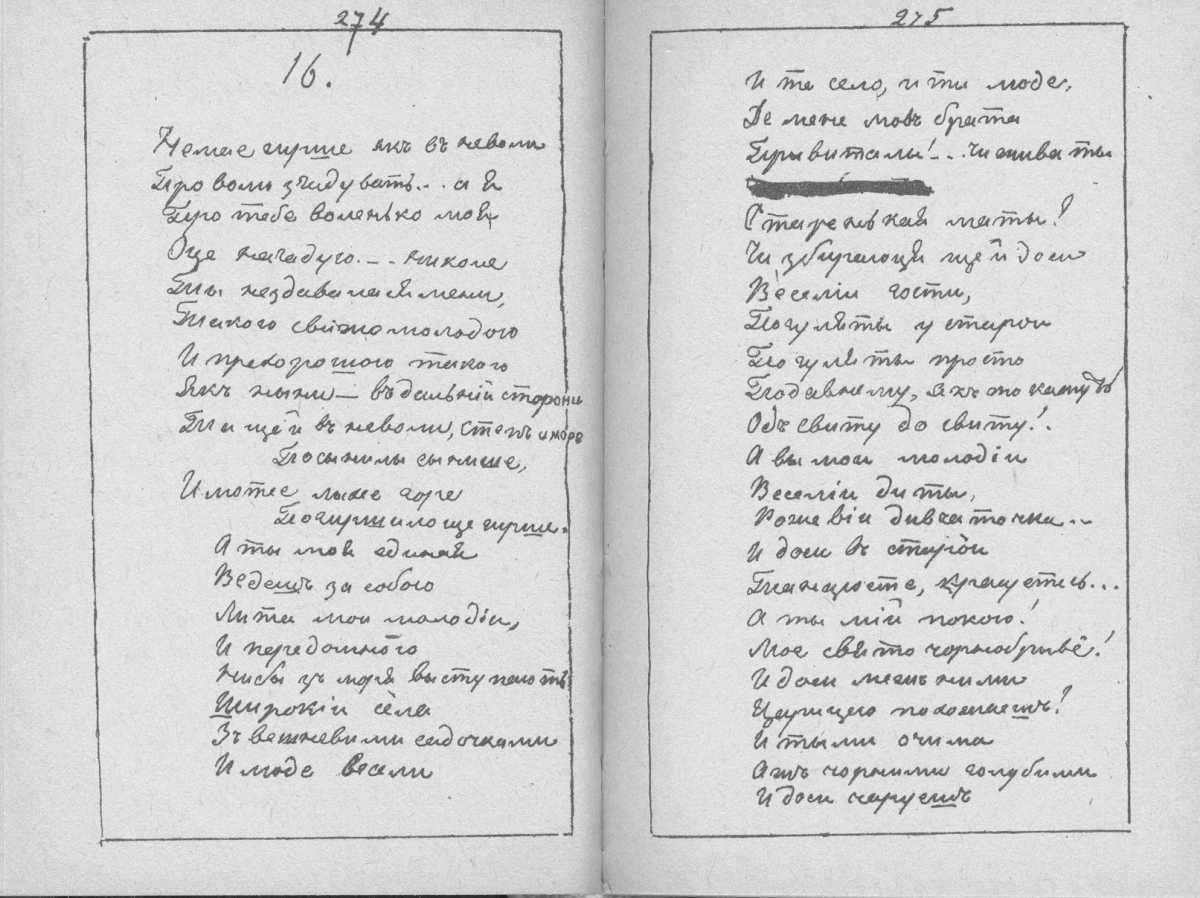 274
16.
Немае гирше якъ въ неволи
Про волю згадувать... а я
Про тебе воленько моя
Оце нагадую... николи
Ты нездавалася мени,
Такого свіжо молодою
И прехорошою такого
Якъ ныни — въ дальній сторони
Та щей въ неволи,
Посынилы сыннше,
И може лыхе горе
Погиршило ще гирше.
А ты моя единая
Ведешъ за собою
Лита мои молодіи,
И передомного
Ниби зъ моря выступають
Широкіи села
Зъ вешневими садочками
И люде весели
275
И те село, и ти люде,
Де мене мовъ брата
Привиталы!... Чи жива ты
Старенькая маты!
Чи збираюця ще й доси
Веселіи гости,
Погуляты у старои
Погуляты просто
Подавнему, якъ то кажуть
Одъ свиту до свиту!.
А вы мои молодіи
Веселіи диты,
Рожевіи дивчаточка..
И доси въ старіои
Танцюете, кращетесь...
А ты мій покою!
Мое свято чорнобриве!
И доси межъ ними
Царицею похожаешъ!
И тыми очима
Ажъ чорними голубими
И доси чаруешъ